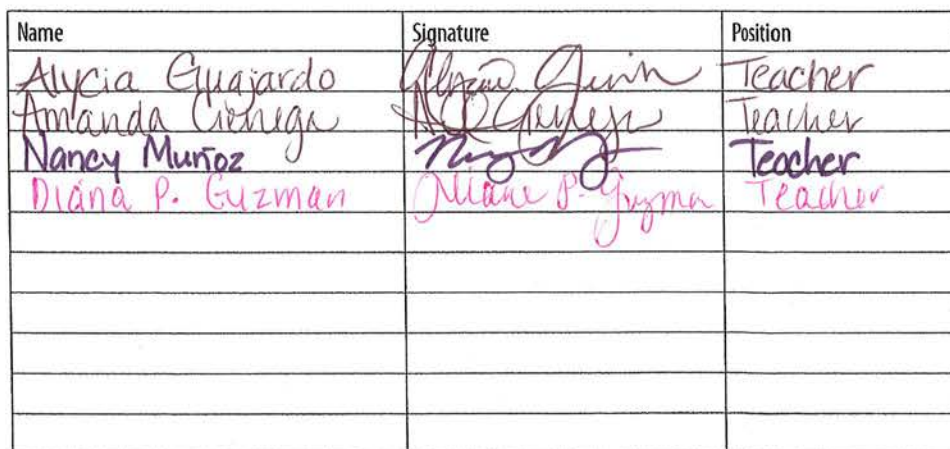 Name Signature Position
Alycia Guajardo Teacher
Amanda Cienega Teacher
Nancy Muñoz Teacher
Diana P. Guzman Diane P. Guzman Teacher